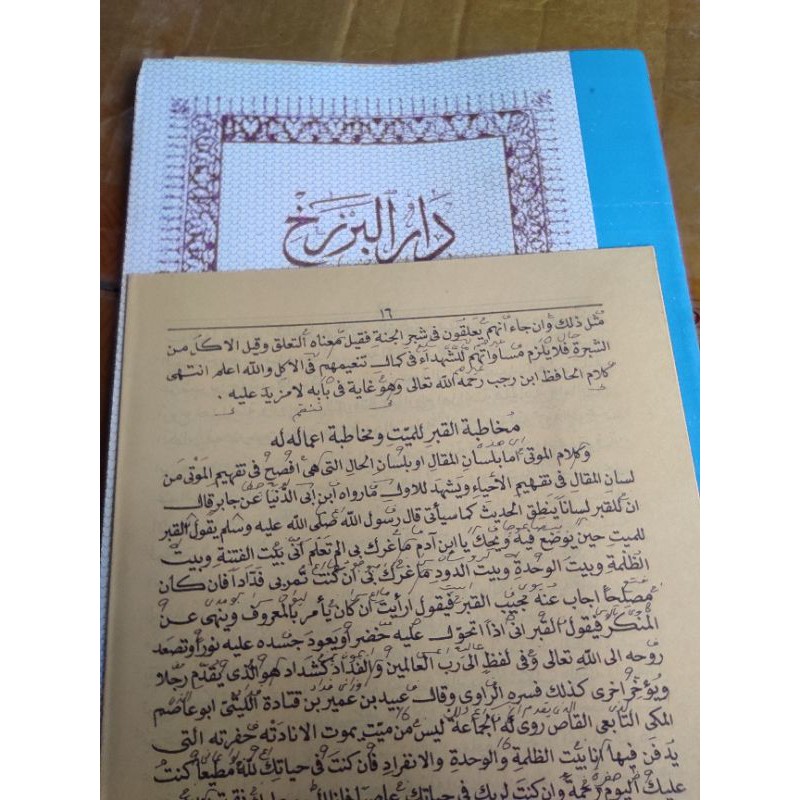 دَارُ البَرْزَخِ
١٦
مثل ذلك وان جاء انهم يعلقون فى شجر الجنة فقيل معناه التعلق وقيل الاكل من
الشجرة فلا يلزم مساواتهم للشهداء فى كمال تنعيمهم فى الاكل والله اعلم انتهى
كلام الحافظ ابن رجب رحمه الله تعالى وهو غاية فى بابه لا مزيد عليه .
مخاطبة القبر للميت ومخاطبة اعماله له
وكلام الموتى اما بلسان المقال او بلسان الحال التى هى افصح فى تفهيم الموتى من
لسان المقال فى تفهيم الاحياء ويشهد للاول مارواه ابن ابى الدنيا عن جابر قال
ان للقبر لسانا ينطق الحديث كما سيأتى قال رسول الله صلى الله عليه وسلم يقول القبر
للميت حين يوضع فيه ويحك يا ابن آدم ما غرك بى الم تعلم أنى بيت الفتنة وبيت
الظلمة وبيت الوحدة وبيت الدود ما غرك بى ان كنت تمر بى فدادا فان كان
مصلحا اجاب عنه مجيب القبر فيقول ارأيت ان كان يأمر بالمعروف وينهى عن
المنكر فيقول القبر انى اذا اتحول عليه خضرا ويعود جسده عليه نورا وتصعد
روحه الى الله تعالى وفى لفظ الى رب العالمين والفداد كشداد هو الذى يقدم رجلا
ويؤخر اخرى كذلك فسره الراوى وقال عبيد بن عمير بن قتادة الليثى ابو عاصم
المكى التابعى القاص روى له الجماعة ليس من ميت يموت الا نادته حفرته التى
يدفن فيها انا بيت الظلمة والوحدة والانفراد فان كنت فى حياتك لله مطيعا كنت
عليك اليوم رحمة وان كنت لربك فى حياتك عاصيا